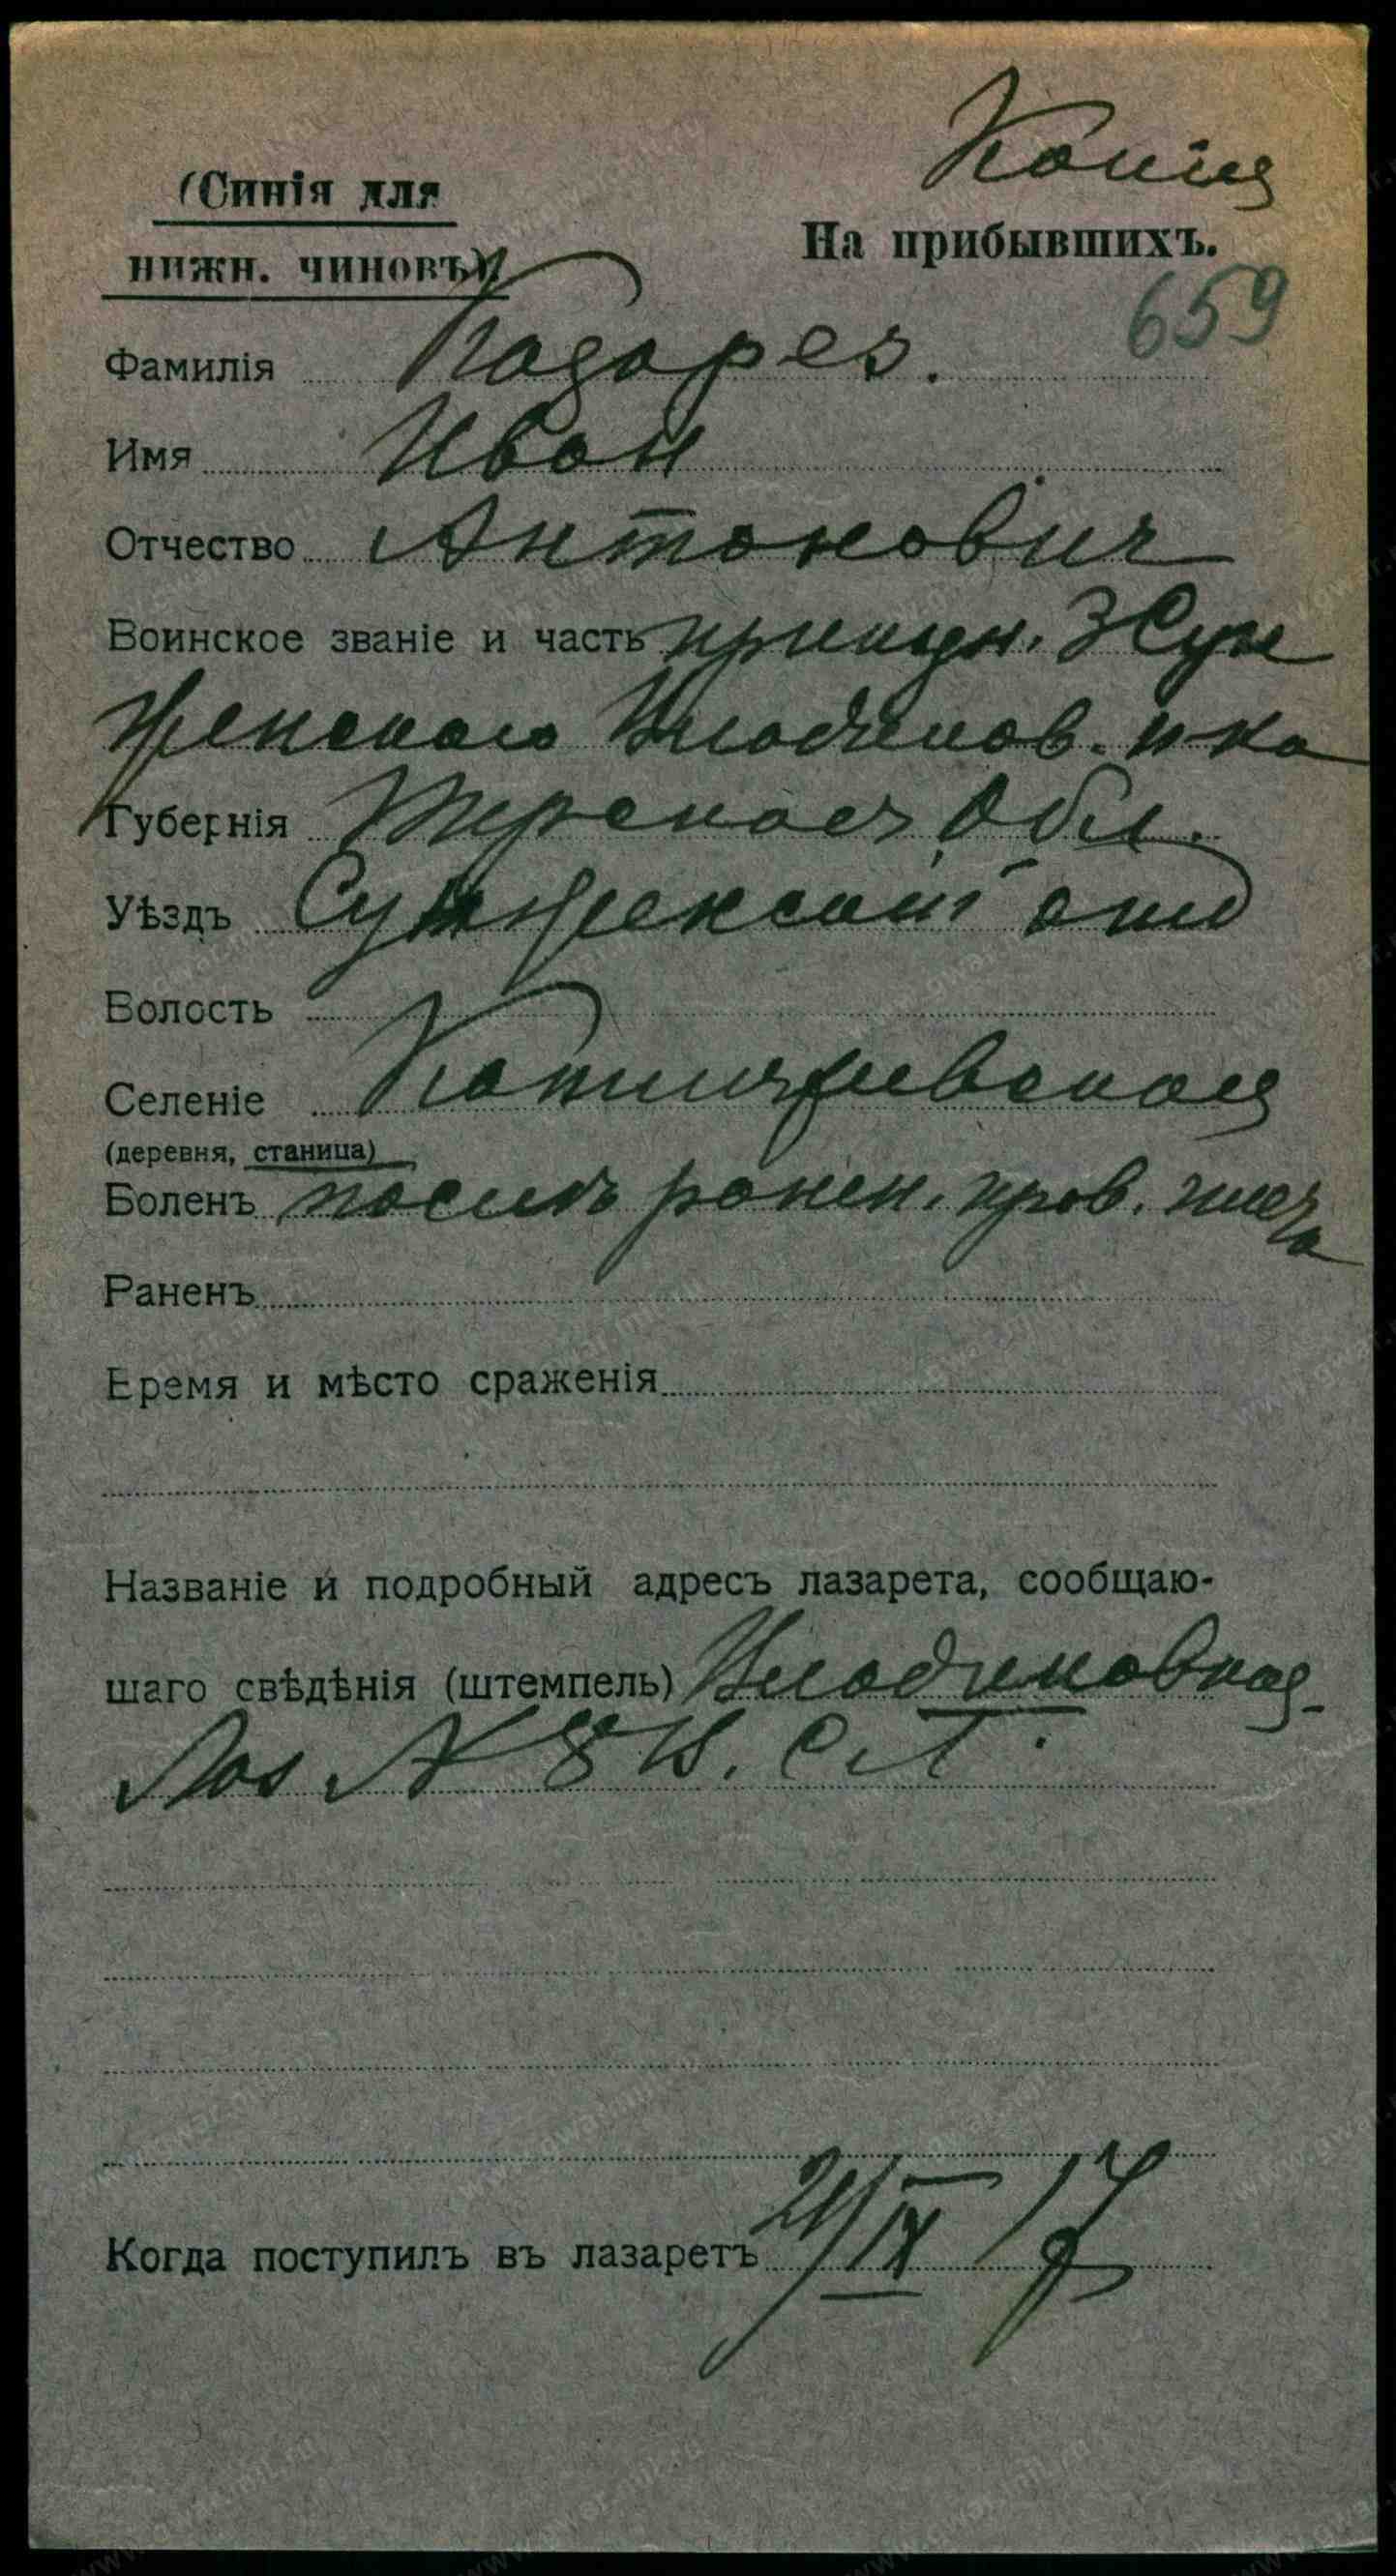 Копия
(Синія для
На прибывшихъ.
нижн. чиновъ).
659
Фамилія Козорез.
Имя Иван
Отчество Антонович
Воинское званіе и часть 3 Сун
женского Владиков. п-ка
Губернія Терская Обл.
Уѣздъ Сунженский отд
Волость
Селеніе
(деревня, станица)
Боленъ после ранен. прав. плеча
Раненъ
Время и мѣсто сраженія
Названіе и подробный адресъ лазарета, сообщаю-
шаго свѣдѣнія (штемпель)
Лаз № 8
Когда поступилъ въ лазаретъ 21/IX 17